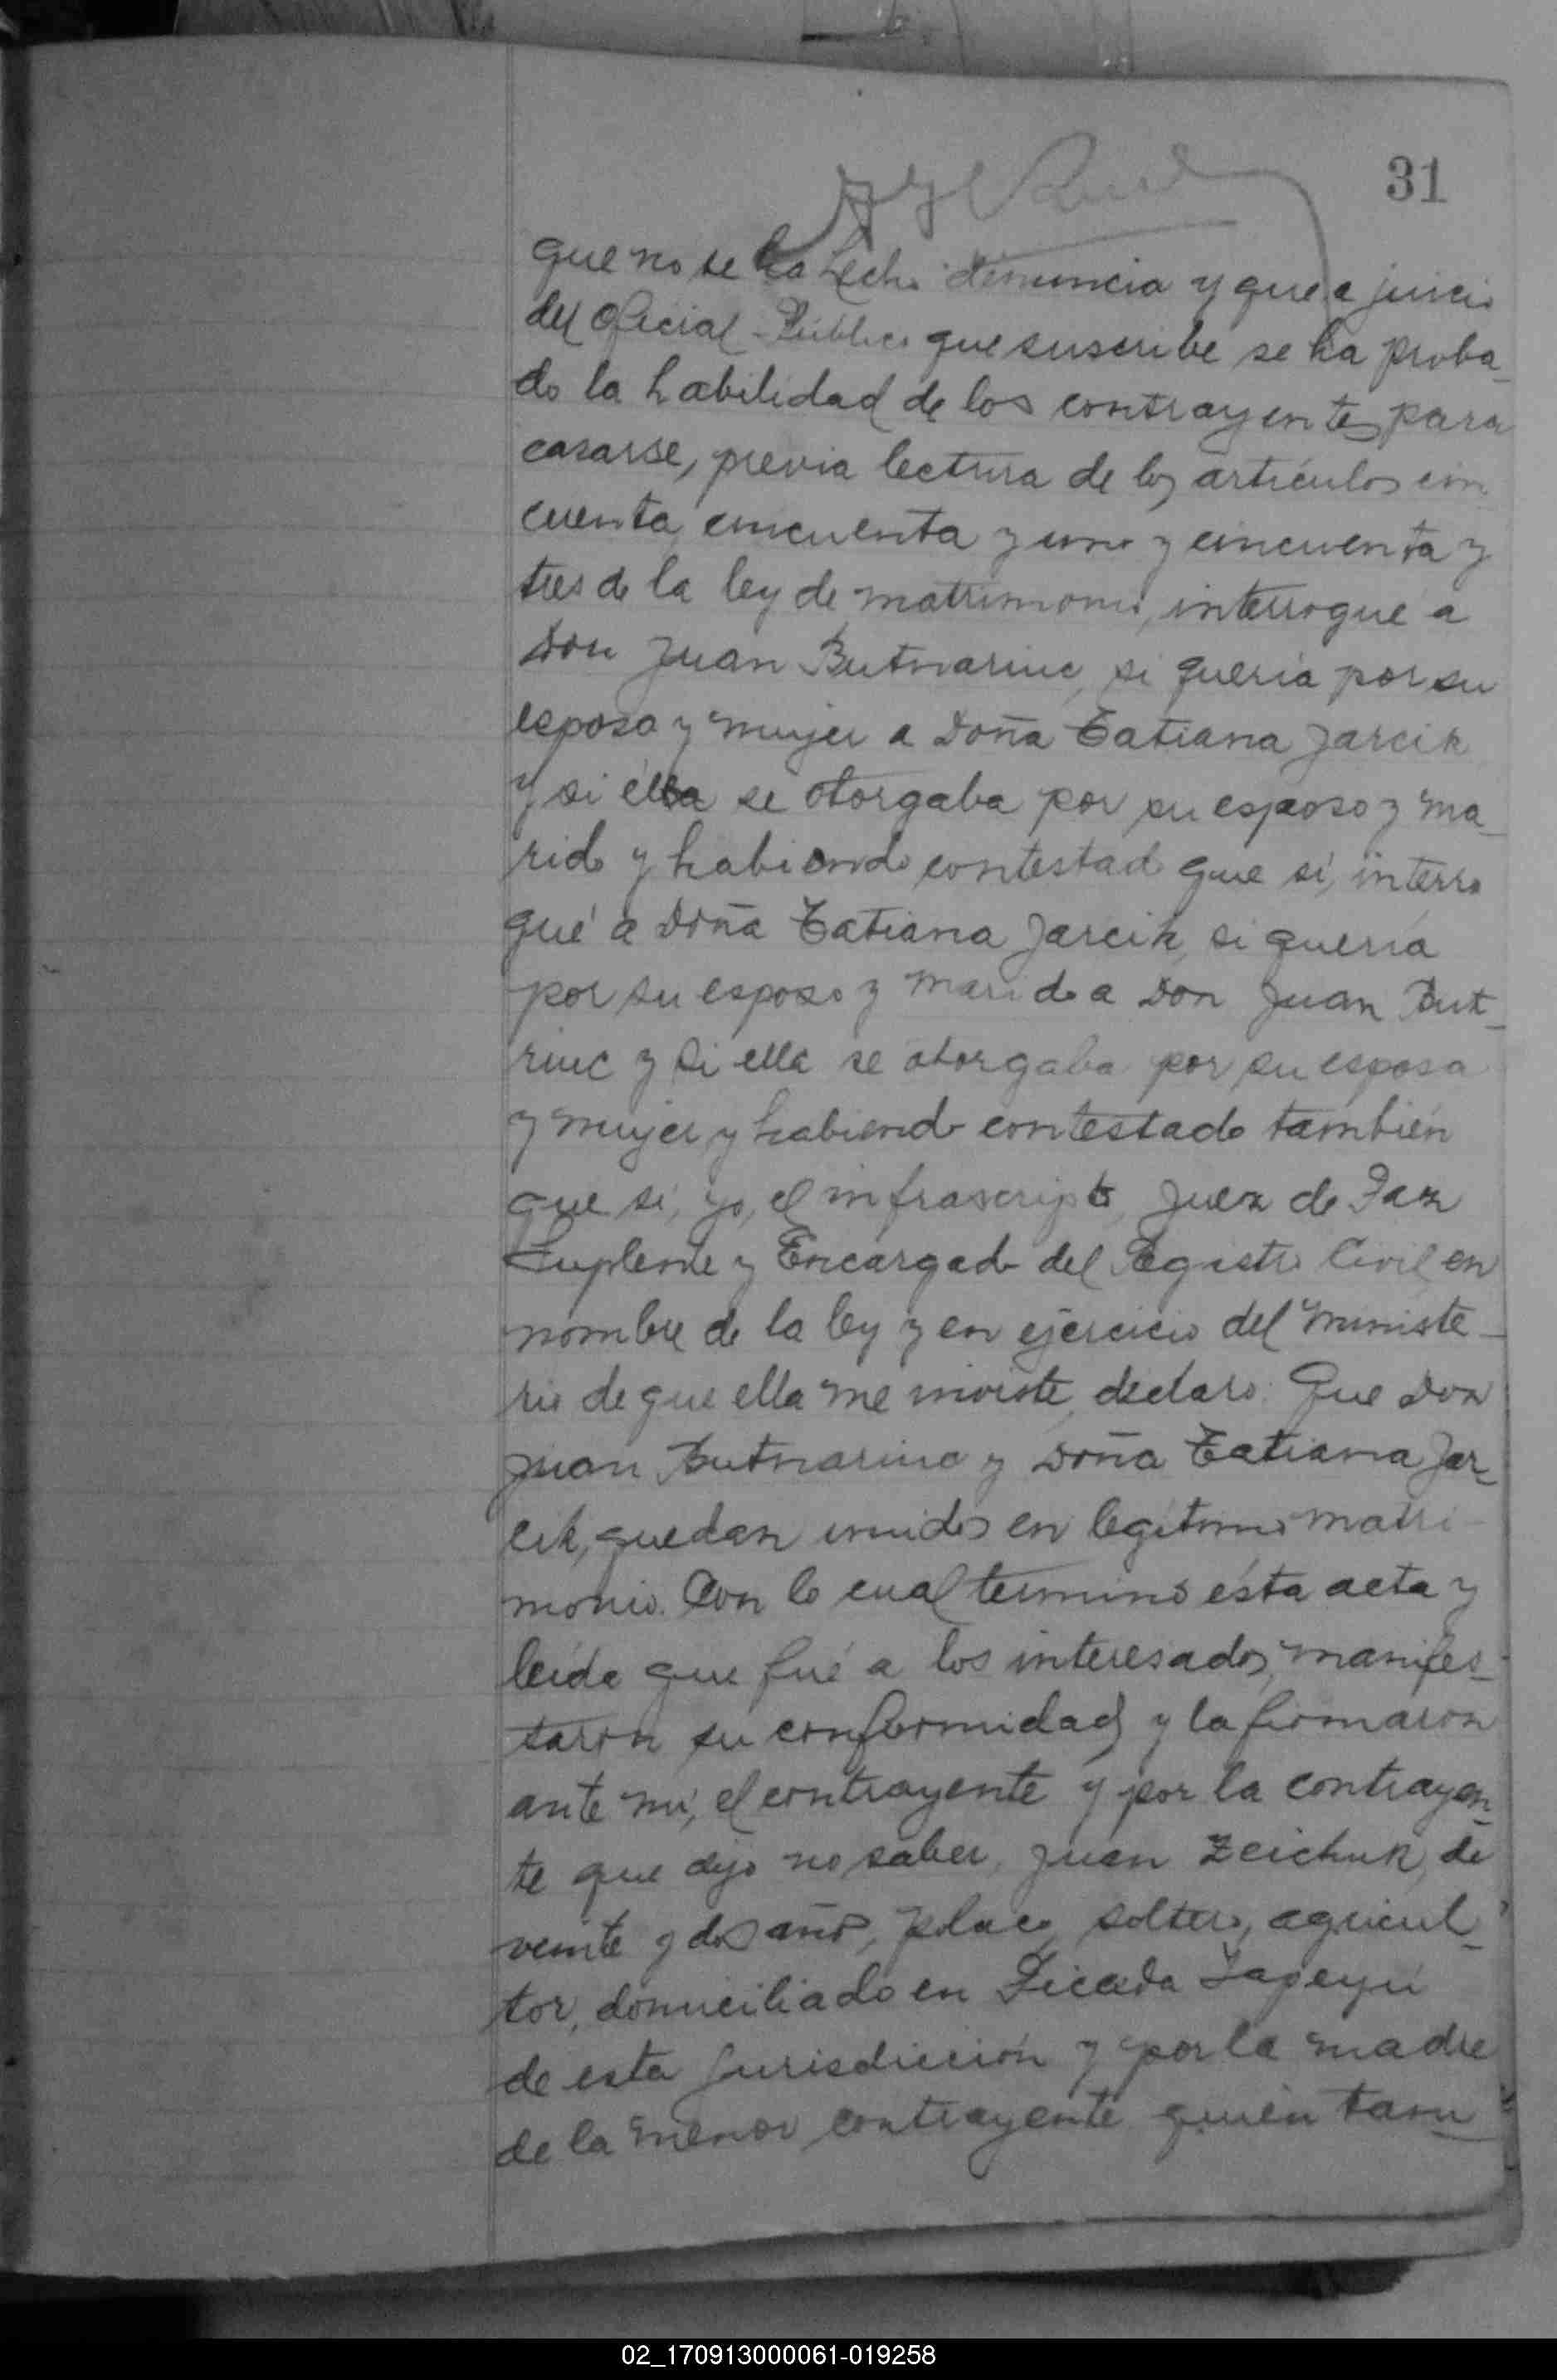 31
que no se ha hecho denuncia y que a juicio
del Oficial Público que suscribe se ha proba-
do la habilidad de los contrayentes para
casarse, previa lectura de los artículos cin
cuenta, cincuenta y uno y cincuenta y
tres de la ley de matrimonio, interrogué a
Don Juan Butnariuc, si quería por su
esposa y mujer a Doña Tatiana Jarcik
y si élla se otorgaba por su esposo y ma-
rido y habiendo contestado que sí, interro
gué a Doña Tatiana Jarcik, si quería
por su esposo y marido a Don Juan But-
riuc y si ella se otorgaba por su esposa
y mujer y habiendo contestado también
que sí, yo, el infrascripto, Juez de Paz
Suplente y Encargado del Registro Civil, en
nombre de la ley y en ejercicio del ministe-
rio de que ella me inviste, declaro: Que Don
Juan Butnariuc y Doña Tatiana Jar-
cik, quedan unidos en legítimo matri-
monio. Con lo cual terminó ésta acta y
leída que fué a los interesados, manifes-
taron su conformidad y la firmaron
ante mí, el contrayente y por la contrayen-
te que dijo no saber, Juan Zeichuk, de
veinte y dos años, polaco, soltero, agricul-
tor, domiciliado en Picada Yapeyú
de esta jurisdicción y por la madre
de la menor contrayente quién tam-
02_170913000061-019258